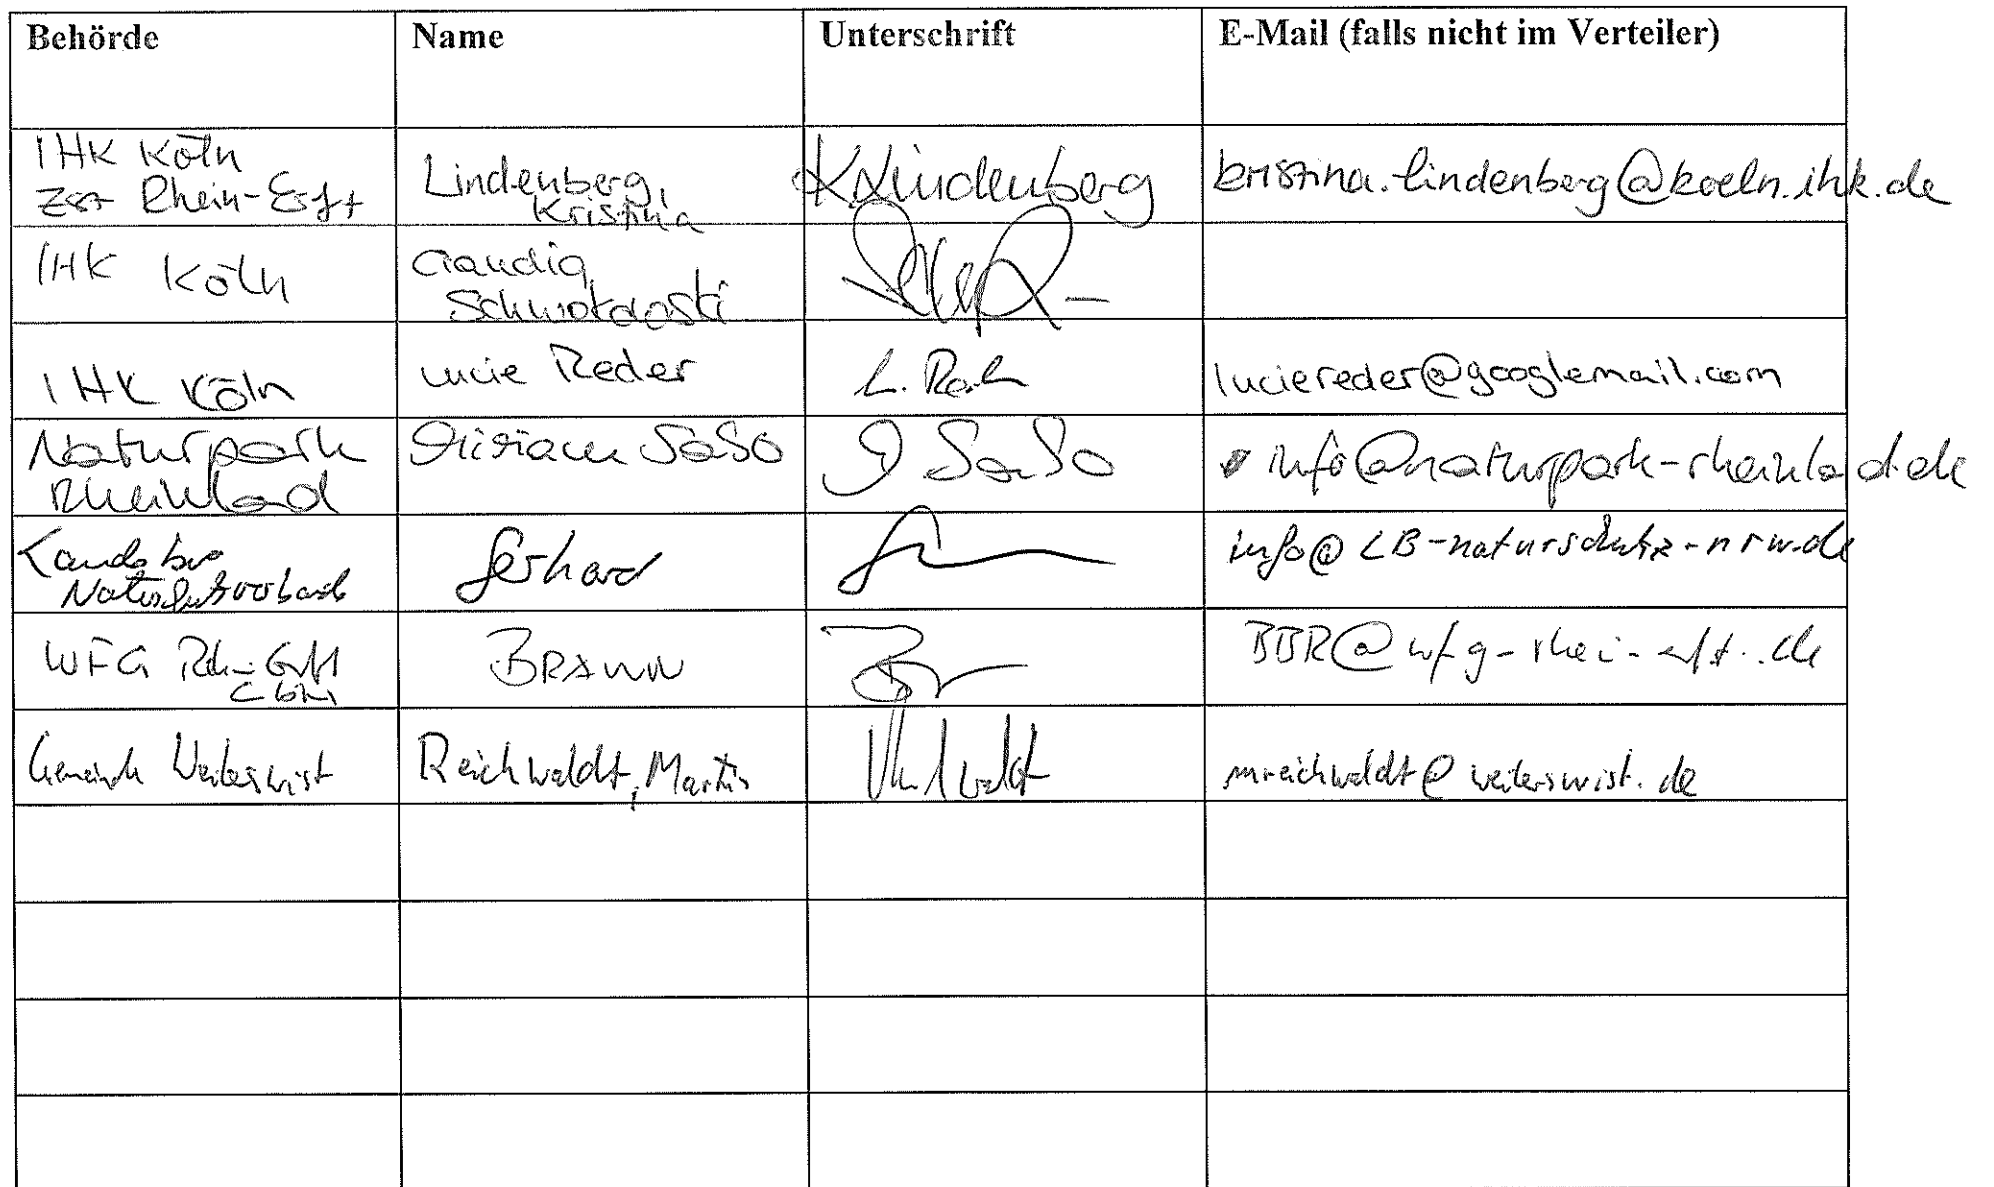 Behörde Name Unterschrift E-Mail (falls nicht im Verteiler)
IHK Köln
Zst Rhein-Erft
Lindenberg,
Kristina
KLindenberg
kristina.lindenberg@koeln.ihk.de
IHK Köln
Claudia
IHK Köln
Lucie Reder
L. Reder
luciereder@googlemail.com
Naturpark
Rheinland
Miriam SaSo
SaSo
info@naturpark-rheinland.de
Gerhard
info@LB-naturschutz-nrw.de
WFG
BRAUN
Br
BBR@wfg-rhein-erft.de
Gemeinde Weilerswist
Reichwaldt, Martin
mreichwaldt@weilerswist.de